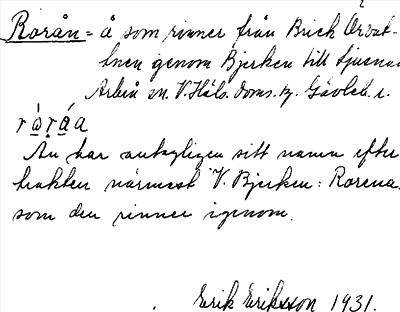 Rorån = å som rinner från Brick Örvat-
tnen genom Bjerken till Ljusnan
Arbrå sn. V. Häls. doms. tg. Gävleb. l.
rɷ̀rá̱a
Ån har antagligen sitt namn efter
trakten närmast V. Bjerken: Rorena,
som den rinner igenom.
Erik Eriksson 1931.